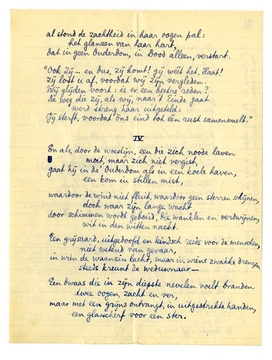 al stond de zachtheid in haar oogen pal:
het glanzen van haar hart,
dat in geen Ouderdom, in Dood alleen, verstart.
"Ook zij — en dus, zij komt! zij wéét het, Haast!
zij lost u af, voordat wij zijn vergleden.
Wij glijden voort: is er een beetre reden?
De weg die zij, als wij, naar 't Einde gaat
werd streng haar uitgebeeld:
zij sterft, voordat ons eind tot één rust samensmelt."
IV
En als, door de woestijn, een die zich noode laven
moet, maar zich niet vergist,
gaat hij in de Ouderdom als in een koele haven,
een kom in stillen mist,
waardoor de wind niet fluit, waardoor geen sterren schijnen,
doch waar zijn lange wacht
door schimmen wordt gedeeld, die wanklen en verdwijnen,
wit in den witten nacht.
Een grijsaard, uitgedoofd en kindsch reeds voor de menschen,
niet wetend van gevaar,
in wien de waanzin lacht, maar in wiens zwakke drengen
steeds kreunt de weduwnaar —
Een dwaas die in zijn diepste nevelen voelt branden
twee oogen, zacht en ver,
maar met een grijns ontvangt, in uitgestrekte handen,
een glasscherf voor een ster.